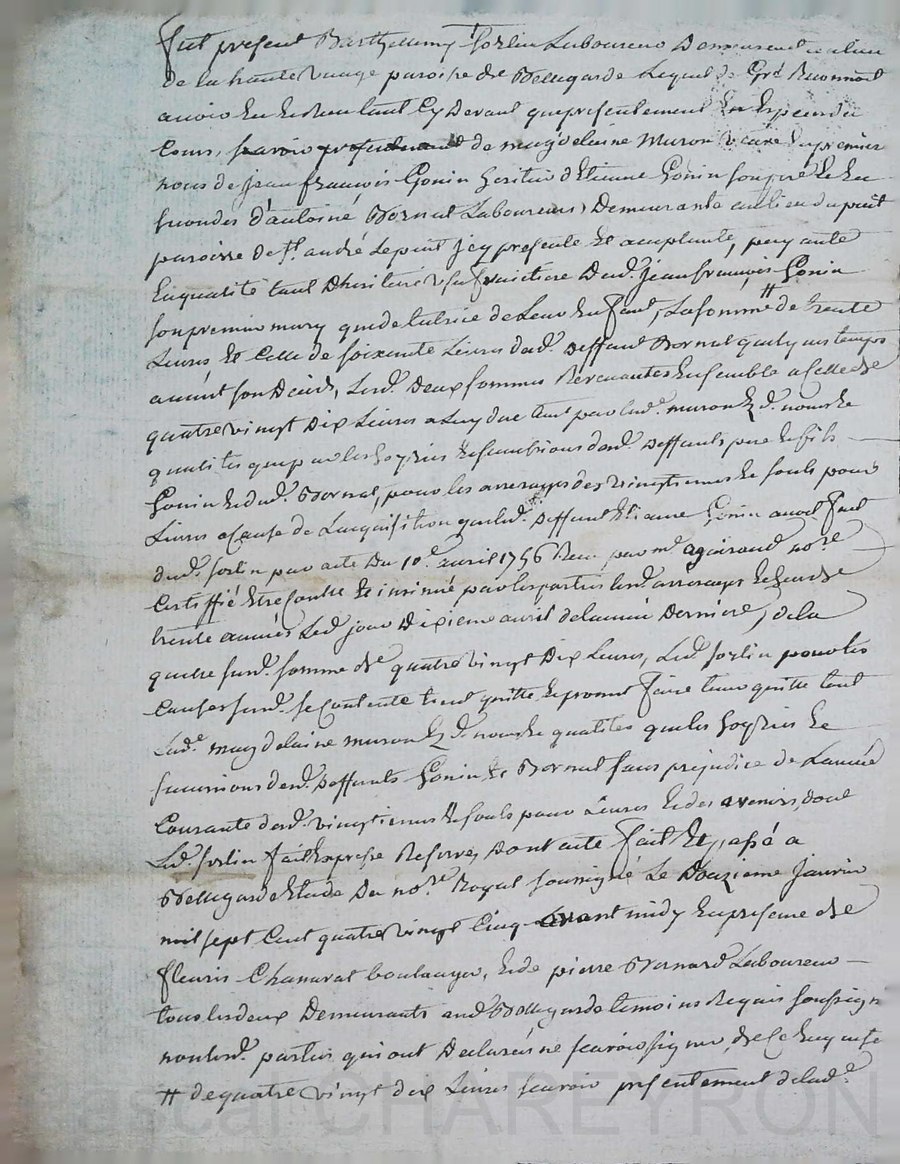 fut present Barthellemy Sorlin Laboureur Demeurant au lieu
de la haute paroisse de Bellegarde Lequel de Gré Reconnoit
avoir Eu et Reçu tant Cy Devant que presentement En Espece du
Cours, scavoir presentement de magdelaine Muron veuve En premier
noces de Jean françois Gonin heritier d'Etienne Gonin son pere Et En
secondes d'antoine Bornat Laboureurs, Demeurante au lieu du puit
paroisse de St. andré Le puit Icy presente Et acceptante, payante
En qualité tant D'heritiere usufruictiere Dud. Jean françois Gonin
son premier mary que de tutrice de Leur Enfant, La somme # de trente
Livres Et Celle de soixante Livres dud. Deffunt Bornat quelques temps
avant son Décès, Lesd. Deux sommes Revenantes Ensemble a Celle de
quatre vingt Dix Livres a Luy due tant par lad.e muron Ez d. noms Et
qualites que par les hoyries Et successions desd. Deffunts pere Et fils
Gonin Et dud. Bornat, pour les arrerages des vingtiemes Et sols pour
Livres a Cause de L'acquisition que led. Deffunt Etienne Gonin avoit fait
dud. Sorlin par acte Du 10.e avril 1756 Reçu par me agniraud no.re
Certiffié Etre Controllé Et insinué par les parties lesd. arrerages Echeus de
trente années Led. jour Dixieme avril de l'année Derniere, de la
quelle susd. somme de quatre vingt Dix Livres, Led. Sorlin pour les
Causes susd. se Contente tient quitte Et promet faire tenir quitte tant
Lad.e magdelaine muron Ez d. noms Et qualites que les hoyries Et
successions desd. Deffunts Gonin Et Bornat sans prejudice de L'année
Courante desd. vingtiemes Et sols pour Livres Et des avenirs, dont
Led. Sorlin fait Expresse Reserve, Dont acte fait Et passé a
Bellegarde Etude Du no.re Royal soussigné Le Douzieme Janvier
mil sept Cent quatre vingt Cinq avant midy En presence de
fleuris Chanavat boulanger, Et de pierre Bernard Laboureur
tous les deux Demeurants aud. Bellegarde temoins Requis soussignés
non lesd. parties qui ont Declarées ne scavoir signer, de Ce Enquise
# de quatre vingt dix Livres scavoir presentement de lad.e
Pascal CHAREYRON